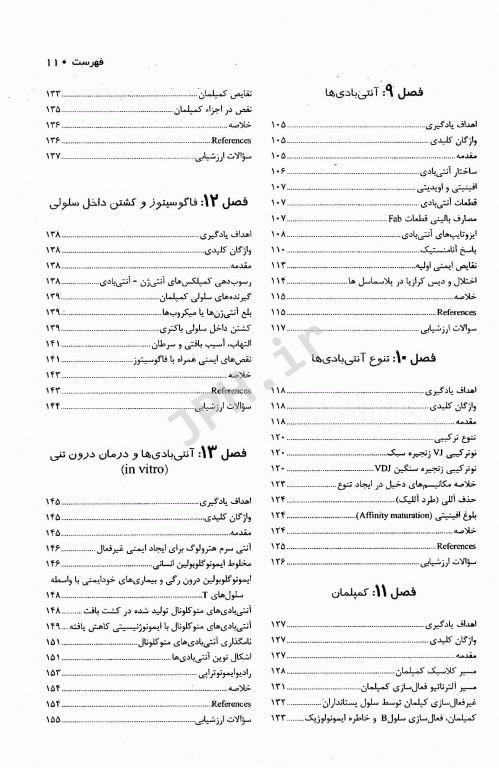 فهرست • ۱۱
فصل ۹: آنتی‌بادی‌ها
اهداف یادگیری ۱۰۵
واژگان کلیدی ۱۰۵
مقدمه ۱۰۵
ساختار آنتی‌بادی ۱۰۶
افینیتی و اویدیتی ۱۰۷
قطعات آنتی‌بادی ۱۰۷
مصارف بالینی قطعات Fab ۱۰۷
ایزوتایپ‌های آنتی‌بادی ۱۰۸
پاسخ آنامنستیک ۱۱۰
نقایص ایمنی اولیه ۱۱۳
اختلال و دیس کرازیا در پلاسماسل ها ۱۱۴
خلاصه ۱۱۵
References ۱۱۵
سوالات ارزشیابی ۱۱۷
فصل ۱۰: تنوع آنتی‌بادی‌ها
اهداف یادگیری ۱۱۸
واژگان کلیدی ۱۱۸
مقدمه ۱۱۸
تنوع ترکیبی ۱۲۰
نوترکیبی VJ زنجیره سبک ۱۲۰
نوترکیبی زنجیره سنگین VDJ ۱۲۰
خلاصه مکانیسم‌های دخیل در ایجاد تنوع ۱۲۳
حذف آللی (طرد آللیک) ۱۲۴
بلوغ افینیتی (Affinity maturation) ۱۲۴
خلاصه ۱۲۴
References ۱۲۵
سؤالات ارزشیابی ۱۲۶
فصل ۱۱: کمپلمان
اهداف یادگیری ۱۲۷
واژگان کلیدی ۱۲۷
مقدمه ۱۲۷
مسیر کلاسیک کمپلمان ۱۲۸
مسیر آلترناتیو فعال‌سازی کمپلمان ۱۳۱
غیرفعال‌سازی کپلمان توسط سلول پستانداران ۱۳۲
کمپلمان، فعال‌سازی سلولB و خاطره ایمونولوژیک ۱۳۳
نقایص کمپلمان ۱۳۳
نقص در اجزاء کمپلمان ۱۳۵
خلاصه ۱۳۶
References ۱۳۶
سؤالات ارزشیابی ۱۳۷
فصل ۱۲: فاگوسیتوز و کشتن داخل سلولی
اهداف یادگیری ۱۳۸
واژگان کلیدی ۱۳۸
مقدمه ۱۳۸
رسوب‌دهی کمپلکس‌های آنتی‌ژن - آنتی‌بادی ۱۳۸
گیرنده‌های سلولی کمپلمان ۱۳۹
بلع آنتی‌ژن‌ها یا میکروب‌ها ۱۳۹
کشتن داخل سلولی باکتری ۱۳۹
التهاب، آسیب بافتی و سرطان ۱۴۱
نقص‌های ایمنی همراه با فاگوسیتوز ۱۴۱
خلاصه ۱۴۳
References ۱۴۳
سؤالات ارزشیابی ۱۴۴
فصل ۱۳: آنتی‌بادی‌ها و درمان درون تنی
(in vitro)
اهداف یادگیری ۱۴۵
واژگان کلیدی ۱۴۵
مقدمه ۱۴۵
آنتی سرم هترولوگ برای ایجاد ایمنی غیرفعال ۱۴۶
مخلوط ایمونوگلوبولین انسانی ۱۴۶
ایمونوگلوبولین درون رگی و بیماری‌های خودایمنی با واسطه
سلول‌های T ۱۴۸
آنتی‌بادی‌های منوکلونال تولید شده در کشت بافت ۱۴۸
آنتی‌بادی‌های منوکلونال با ایمونوژنیسیتی کاهش یافته ۱۴۹
نامگذاری آنتی‌بادی‌های منوکلونال ۱۵۱
اشکال نوین آنتی‌بادی‌ها ۱۵۱
رادیوایمونوتراپی ۱۵۳
خلاصه ۱۵۴
References ۱۵۴
سؤالات ارزشیابی ۱۵۵
JPW.ir